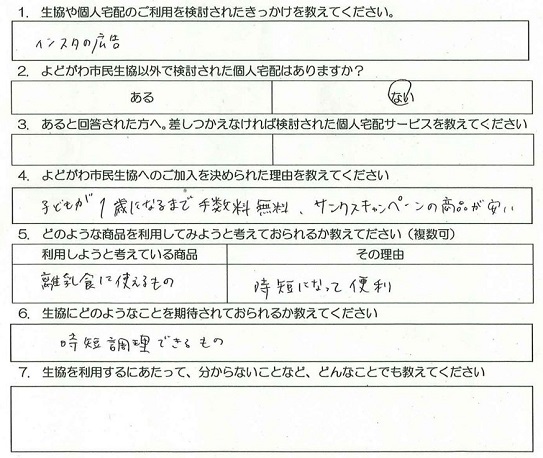 1. 生協や個人宅配のご利用を検討されたきっかけを教えてください。
インスタの広告
2. よどがわ市民生協以外で検討された個人宅配はありますか？
ある ない
3. あると回答された方へ。差しつかえなければ検討された個人宅配サービスを教えてください
4. よどがわ市民生協へのご加入を決められた理由を教えてください
子どもが1歳になるまで手数料無料、サンクスキャンペーンの商品が安い
5. どのような商品を利用してみようと考えておられるか教えてださい（複数可）
利用しようと考えている商品 その理由
離乳食に使えるもの 時短になって便利
6. 生協にどのようなことを期待されておられるか教えてください
時短調理できるもの
7. 生協を利用するにあたって、分からないことなど、どんなことでも教えてください